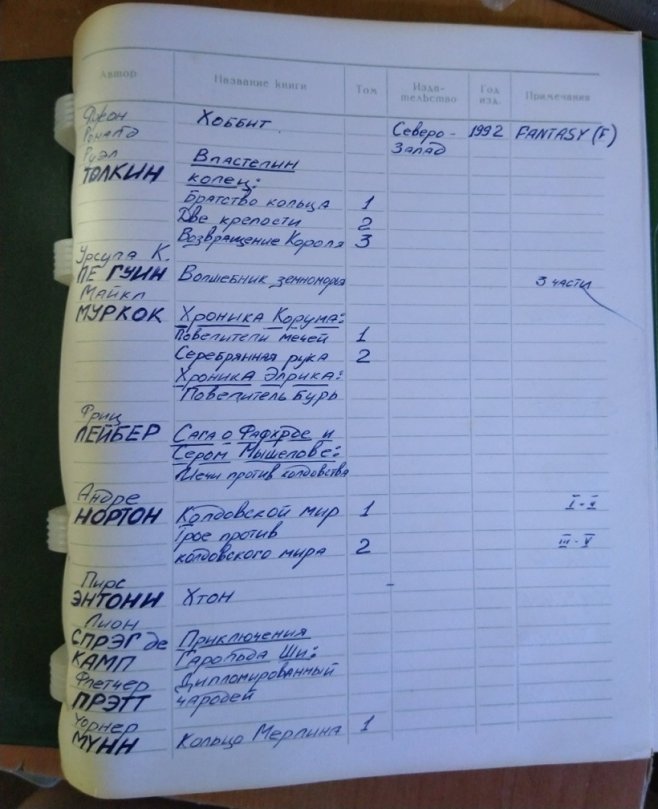 Автор Название книги Том Изда- Год Примечания
тельство изд.
Джон Хоббит. Северо- 1992 FANTASY (F)
Рональд Запад
Руэл Властелин
ТОЛКИН колец:
Братство кольца 1
Две крепости 2
Возвращение Короля 3
Урсула К.
ЛЕ ГУИН Волшебник земноморья 3 части
Майкл
МУРКОК Хроника Корума:
Повелители мечей 1
Серебрянная рука 2
Хроника Элрика:
Повелитель бурь
Фриц
ЛЕЙБЕР Сага о Фафхрде и
Сером Мышелове:
Мечи против колдовства
Андре
НОРТОН Колдовской мир 1 I-II
Трое против
колдовского мира 2 III-V
Пирс
ЭНТОНИ Хтон
Лион
СПРЭГ де Приключения
КАМП Гарольда Ши:
Флетчер Дипломированный
ПРЭТТ чародей
Уорнер
МУНН Кольцо Мерлина 1